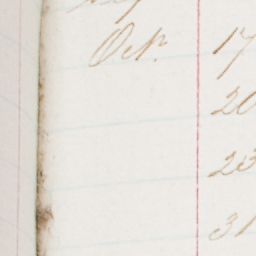 Oct. 17
20
23
31